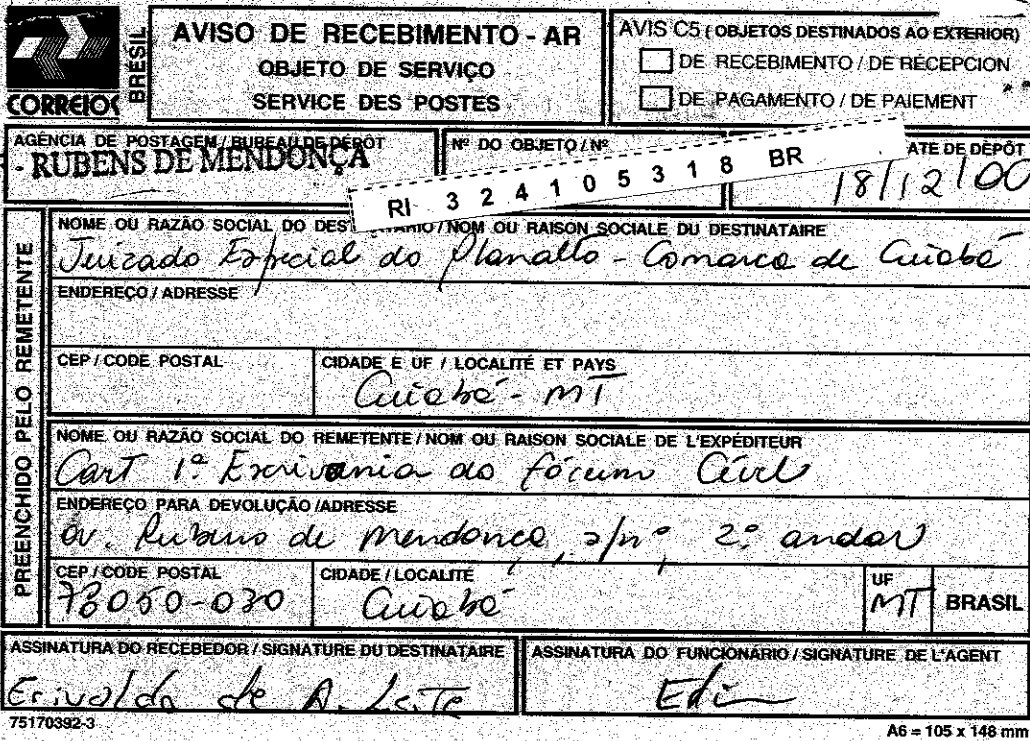 CORREIOS
BRÉSIL
AVISO DE RECEBIMENTO - AR
OBJETO DE SERVIÇO
SERVICE DES POSTES
AVIS C5 (OBJETOS DESTINADOS AO EXTERIOR)
DE RECEBIMENTO / DE RÉCEPCION
DE PAGAMENTO / DE PAIEMENT
AGÊNCIA DE POSTAGEM / BUREAU DE DÉPÔT
- RUBENS DE MENDONÇA
Nº DO OBJETO / Nº
RI 3 2 4 1 0 5 3 1 8 BR
ATE DE DÉPÔT
18/12/00
PREENCHIDO PELO REMETENTE
NOME OU RAZÃO SOCIAL DO DESTINATÁRIO / NOM OU RAISON SOCIALE DU DESTINATAIRE
Juizado Especial do Planalto - Comarca de Cuiabá
ENDEREÇO / ADRESSE
CEP / CODE POSTAL
CIDADE E UF / LOCALITÉ ET PAYS
Cuiabá - MT
NOME OU RAZÃO SOCIAL DO REMETENTE / NOM OU RAISON SOCIALE DE L'EXPÉDITEUR
Cart 1ª Escrivania do fórum Cível
ENDEREÇO PARA DEVOLUÇÃO / ADRESSE
av. Rubens de Mendonça, s/nº, 2º andar
CEP / CODE POSTAL
78050-030
CIDADE / LOCALITÉ
Cuiabá
UF
MT
BRASIL
ASSINATURA DO RECEBEDOR / SIGNATURE DU DESTINATAIRE
Erivalda de A. Leite
ASSINATURA DO FUNCIONÁRIO / SIGNATURE DE L'AGENT
75170392-3
A6 = 105 x 148 mm